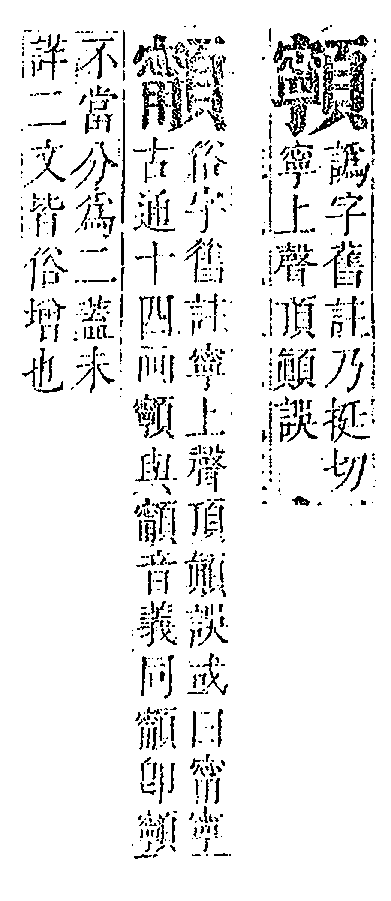 𩕳
譌字舊註乃挺切
寧上聲頂顛誤
俗字舊註寧上聲頂顛誤或曰甯寧
古通十四画𩕳與音義同卽𩕳
不當分爲二蓋未
詳二文皆俗增也